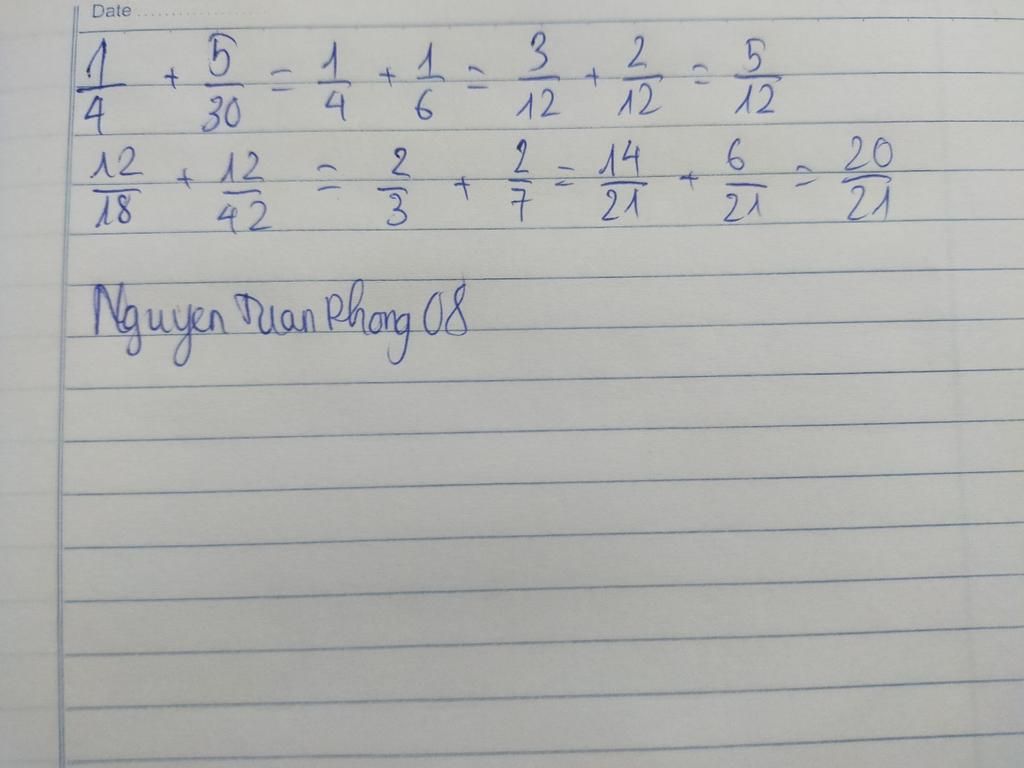 Date
1/4 + 5/30 = 1/4 + 1/6 = 3/12 + 2/12 = 5/12
12/18 + 12/42 = 2/3 + 2/7 = 14/21 + 6/21 = 20/21
Nguyen Tuan Phong 08